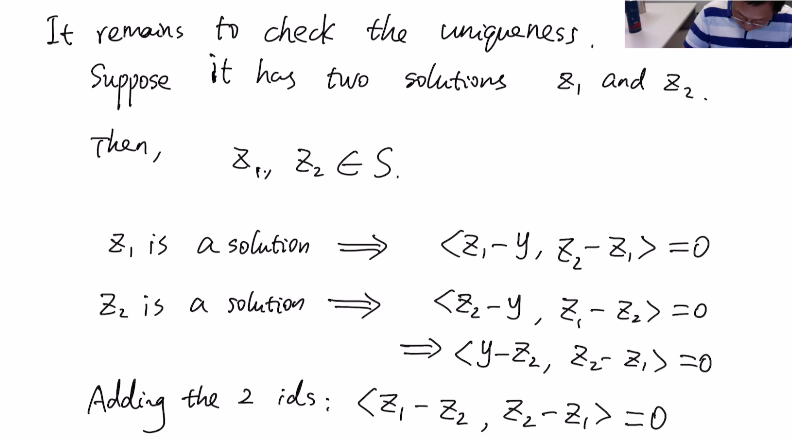 It remains to check the uniqueness.
Suppose it has two solutions z₁ and z₂.
Then, z₁, z₂ ∈ S.
z₁ is a solution ⟹ <z₁ - y, z₂ - z₁> = 0
z₂ is a solution ⟹ <z₂ - y, z₁ - z₂> = 0
⟹ <y - z₂, z₂ - z₁> = 0
Adding the 2 ids: <z₁ - z₂, z₂ - z₁> = 0